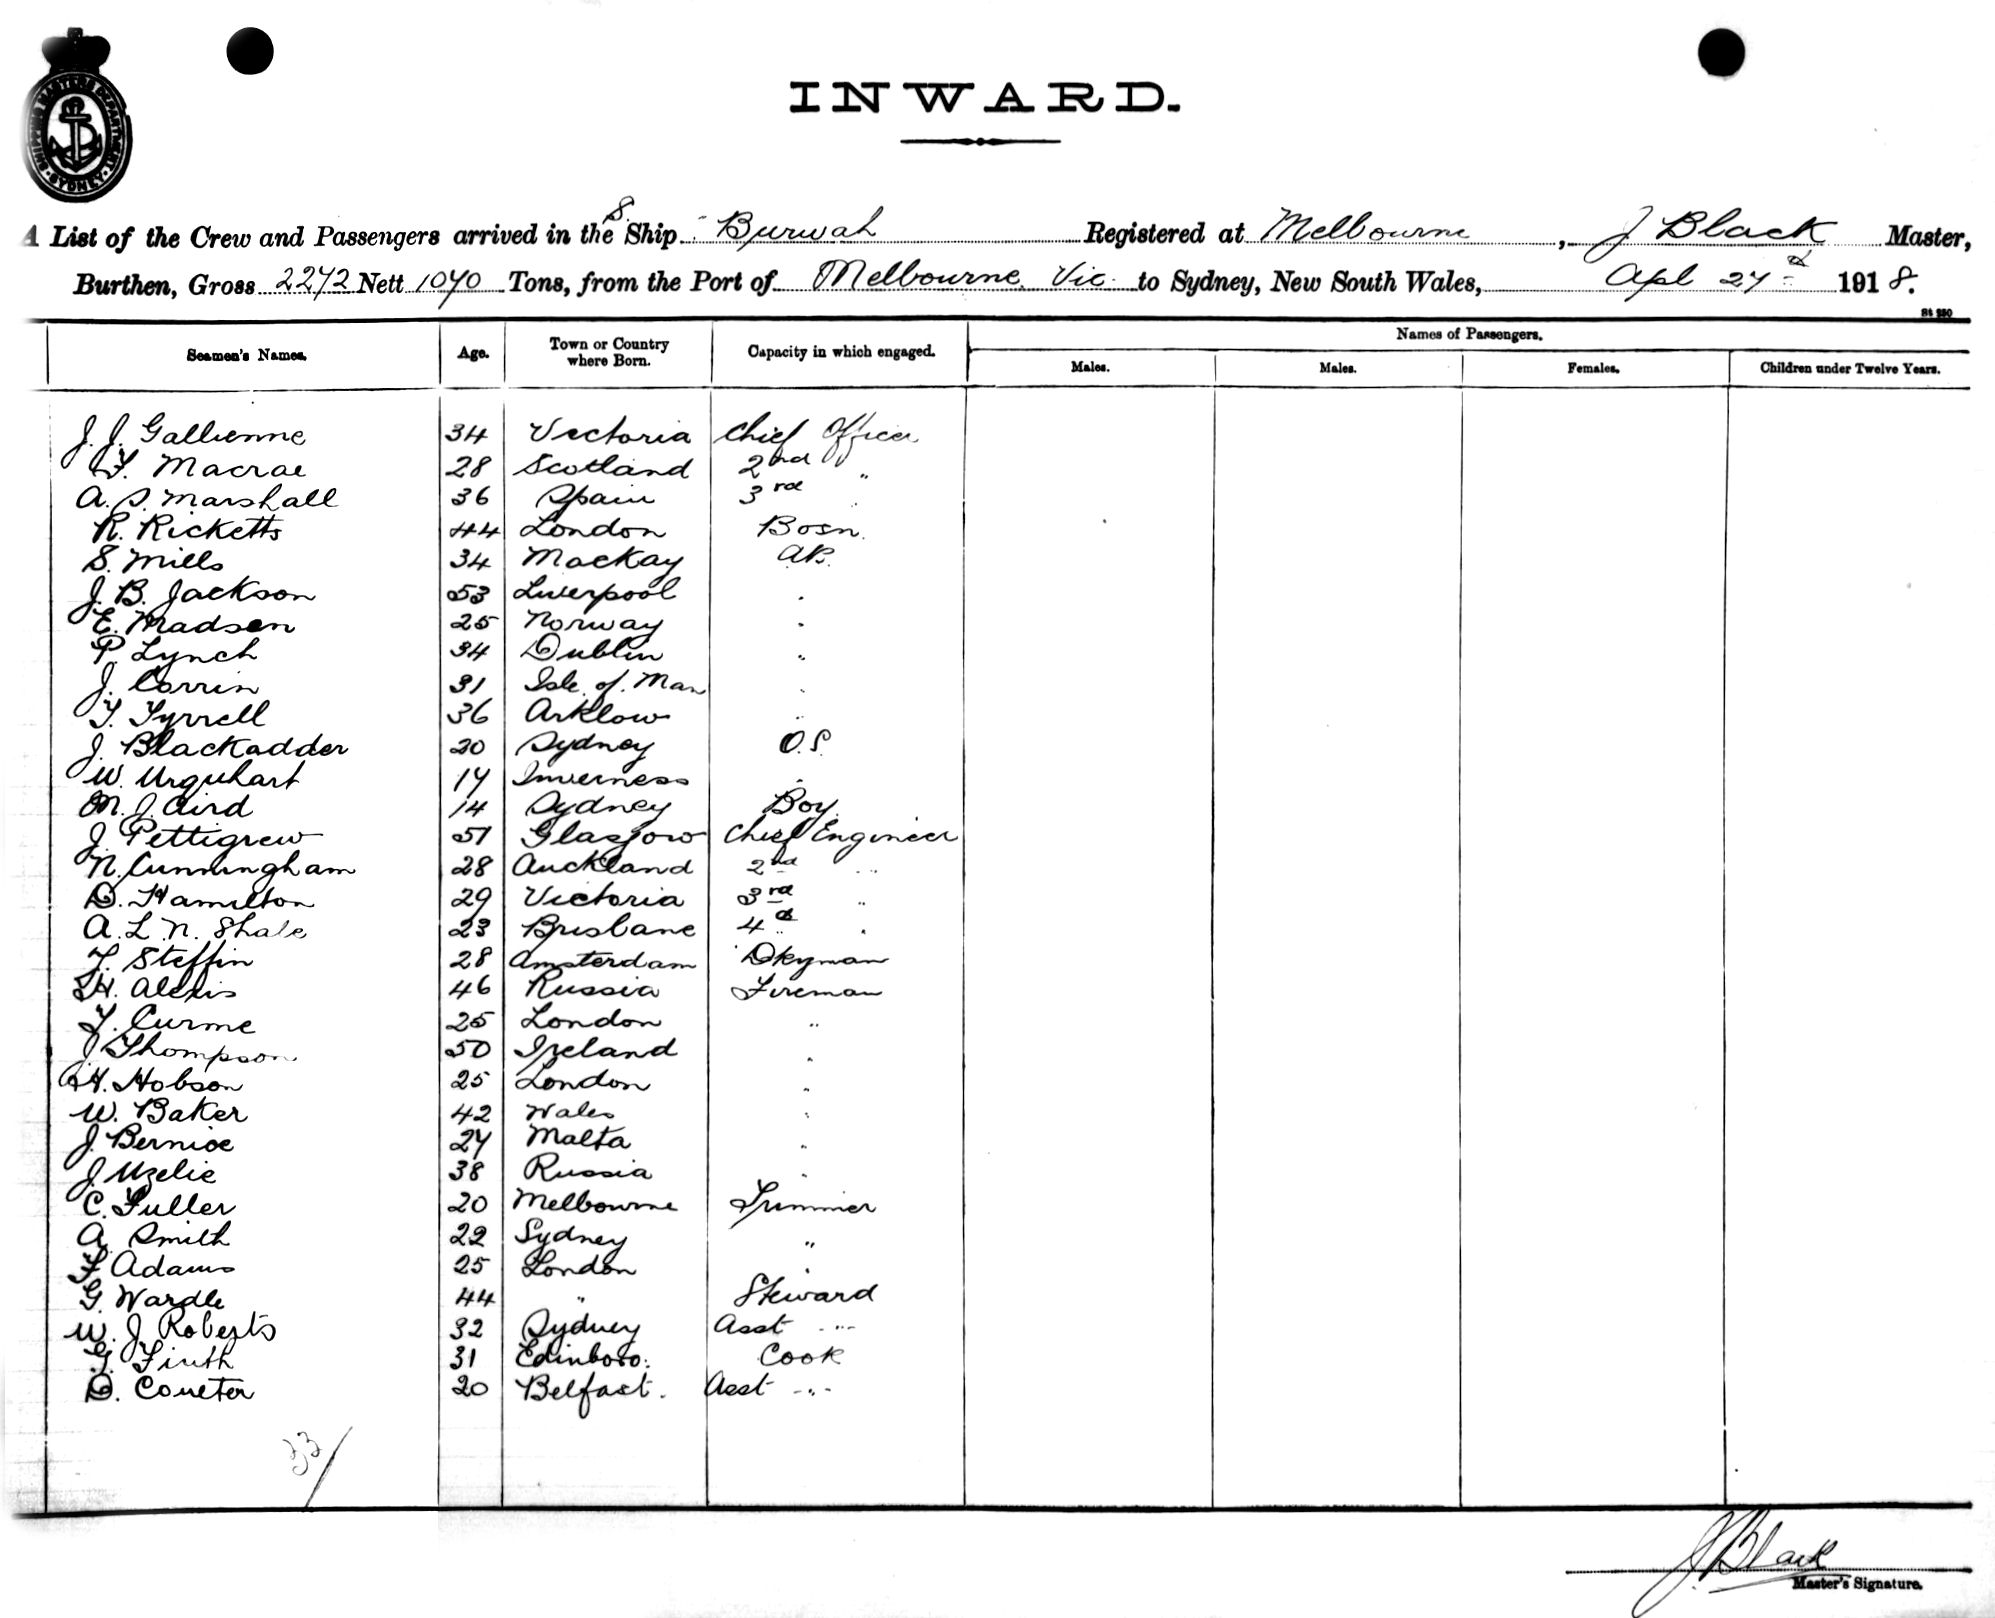 SHIPPING MASTERS DEPARTMENT · SYDNEY ·
INWARD.
A List of the Crew and Passengers arrived in the S. Ship Burwah Registered at Melbourne, J Black Master,
Burthen, Gross 2272 Nett 1070 Tons, from the Port of Melbourne Vic. to Sydney, New South Wales, Apl 27th 1918.
St 250
Seamen's Names. Age. Town or Country where Born. Capacity in which engaged. Names of Passengers.
Males. Males. Females. Children under Twelve Years.
J. J. Gallienne 34 Victoria Chief Officer
Macrae 28 Scotland 2nd "
A. S. Marshall 36 Spain 3rd
R. Ricketts 44 London Bosn.
S. Mills 34 Mackay AB.
J. B. Jackson 53 Liverpool "
E. Madsen 25 Norway "
P. Lynch 34 Dublin "
J. Corrin 31 Isle of Man "
T. Tyrrell 36 Arklow "
J. Blackadder 20 Sydney O.S.
W. Urquhart 17 Inverness "
M. J. Aird 14 Sydney Boy.
J. Pettigrew 51 Glasgow Chief Engineer
N. Cunningham 28 Auckland 2nd "
D. Hamilton 29 Victoria 3rd "
A. L. N. Shale 23 Brisbane 4th "
Steffin 28 Amsterdam Dkyman
H. Alexis 46 Russia Fireman
Curme 25 London "
J Thompson 50 Ireland "
H. Hobson 25 London "
W. Baker 42 Wales "
J. Bernice 27 Malta "
J. Uzelie 38 Russia "
C. Fuller 20 Melbourne Trimmer
A. Smith 22 Sydney "
F Adams 25 London "
G. Wardle 44 " Steward
W. J. Roberts 32 Sydney Asst "
G. Firth 31 Edinboro. Cook
D. Coulter 20 Belfast. Asst "
33/
J Black
Master's Signature.